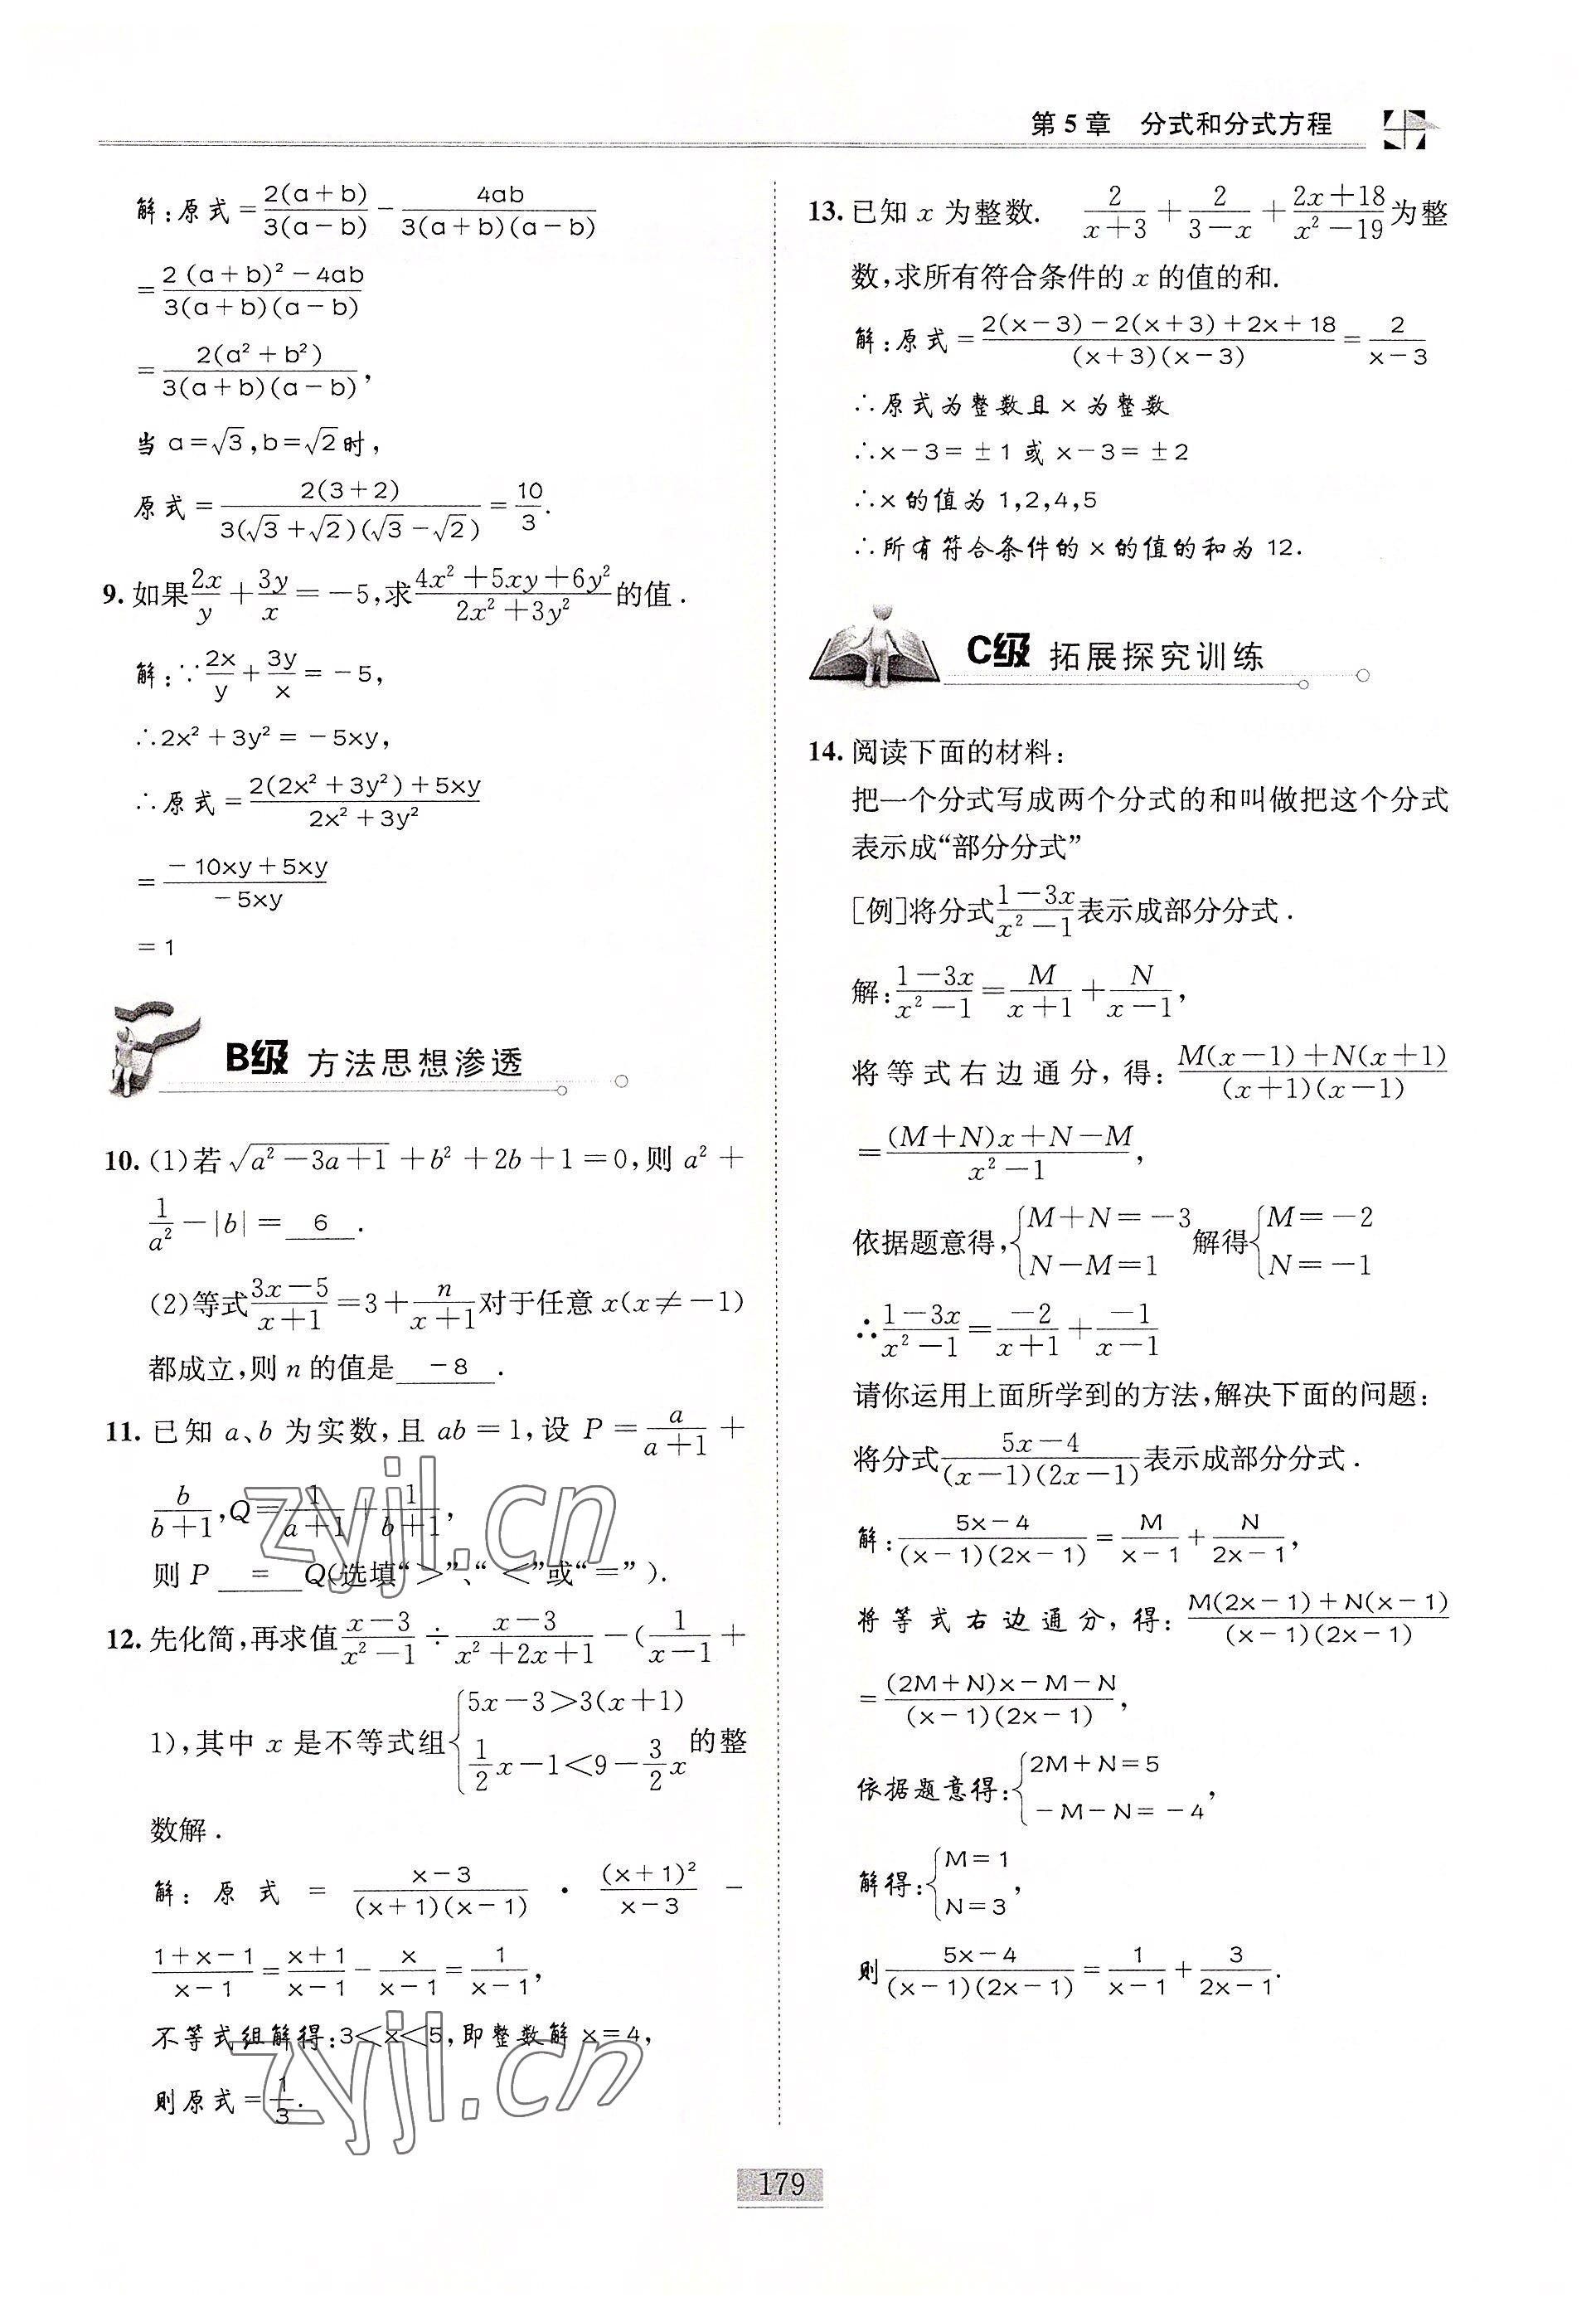 第 5 章 分式和分式方程
解:原式=\frac{2(a+b)}{3(a-b)}-\frac{4ab}{3(a+b)(a-b)}
=\frac{2(a+b)²-4ab}{3(a+b)(a-b)}
=\frac{2(a²+b²)}{3(a+b)(a-b)},
当 a=√3,b=√2时,
原式=\frac{2(3+2)}{3(√3+√2)(√3-√2)}=\frac{10}{3}.
9. 如果\frac{2x}{y}+\frac{3y}{x}=-5,求\frac{4x²+5xy+6y²}{2x²+3y²}的值.
解:∵\frac{2x}{y}+\frac{3y}{x}=-5,
∴2x²+3y²=-5xy,
∴原式=\frac{2(2x²+3y²)+5xy}{2x²+3y²}
=\frac{-10xy+5xy}{-5xy}
=1
B级 方法思想渗透
10. (1)若\sqrt{a²-3a+1}+b²+2b+1=0,则 a²+
\frac{1}{a²}-|b|= 6 .
(2)等式\frac{3x-5}{x+1}=3+\frac{n}{x+1}对于任意 x(x≠-1)
都成立,则 n 的值是 -8 .
11. 已知 a、b 为实数,且 ab=1,设 P=\frac{a}{a+1}+
\frac{b}{b+1},Q=\frac{1}{a+1}+\frac{1}{b+1},
则 P = Q(选填“>”、“<”或“=”).
12. 先化简,再求值\frac{x-3}{x²-1}÷\frac{x-3}{x²+2x+1}-(\frac{1}{x-1}+
1),其中 x 是不等式组{5x-3>3(x+1) \frac{1}{2}x-1<9-\frac{3}{2}x 的整
数解.
解:原式=\frac{x-3}{(x+1)(x-1)}·\frac{(x+1)²}{x-3}-
\frac{1+x-1}{x-1}=\frac{x+1}{x-1}-\frac{x}{x-1}=\frac{1}{x-1},
不等式组解得:3<x<5,即整数解 x=4,
则原式=\frac{1}{3}.
13. 已知 x 为整数. \frac{2}{x+3}+\frac{2}{3-x}+\frac{2x+18}{x²-19}为整
数,求所有符合条件的 x 的值的和.
解:原式=\frac{2(x-3)-2(x+3)+2x+18}{(x+3)(x-3)}=\frac{2}{x-3}
∴原式为整数且 x 为整数
∴x-3=±1 或 x-3=±2
∴x 的值为 1,2,4,5
∴所有符合条件的 x 的值的和为 12.
C级 拓展探究训练
14. 阅读下面的材料:
把一个分式写成两个分式的和叫做把这个分式
表示成“部分分式”
[例]将分式\frac{1-3x}{x²-1}表示成部分分式.
解:\frac{1-3x}{x²-1}=\frac{M}{x+1}+\frac{N}{x-1},
将等式右边通分,得:\frac{M(x-1)+N(x+1)}{(x+1)(x-1)}
=\frac{(M+N)x+N-M}{x²-1},
依据题意得,{M+N=-3 N-M=1 解得{M=-2 N=-1
∴\frac{1-3x}{x²-1}=\frac{-2}{x+1}+\frac{-1}{x-1}
请你运用上面所学到的方法,解决下面的问题:
将分式\frac{5x-4}{(x-1)(2x-1)}表示成部分分式.
解:\frac{5x-4}{(x-1)(2x-1)}=\frac{M}{x-1}+\frac{N}{2x-1},
将等式右边通分,得:\frac{M(2x-1)+N(x-1)}{(x-1)(2x-1)}
=\frac{(2M+N)x-M-N}{(x-1)(2x-1)},
依据题意得:{2M+N=5 -M-N=-4,
解得:{M=1 N=3,
则\frac{5x-4}{(x-1)(2x-1)}=\frac{1}{x-1}+\frac{3}{2x-1}.
zyjl.cn
zyjl.cn
179